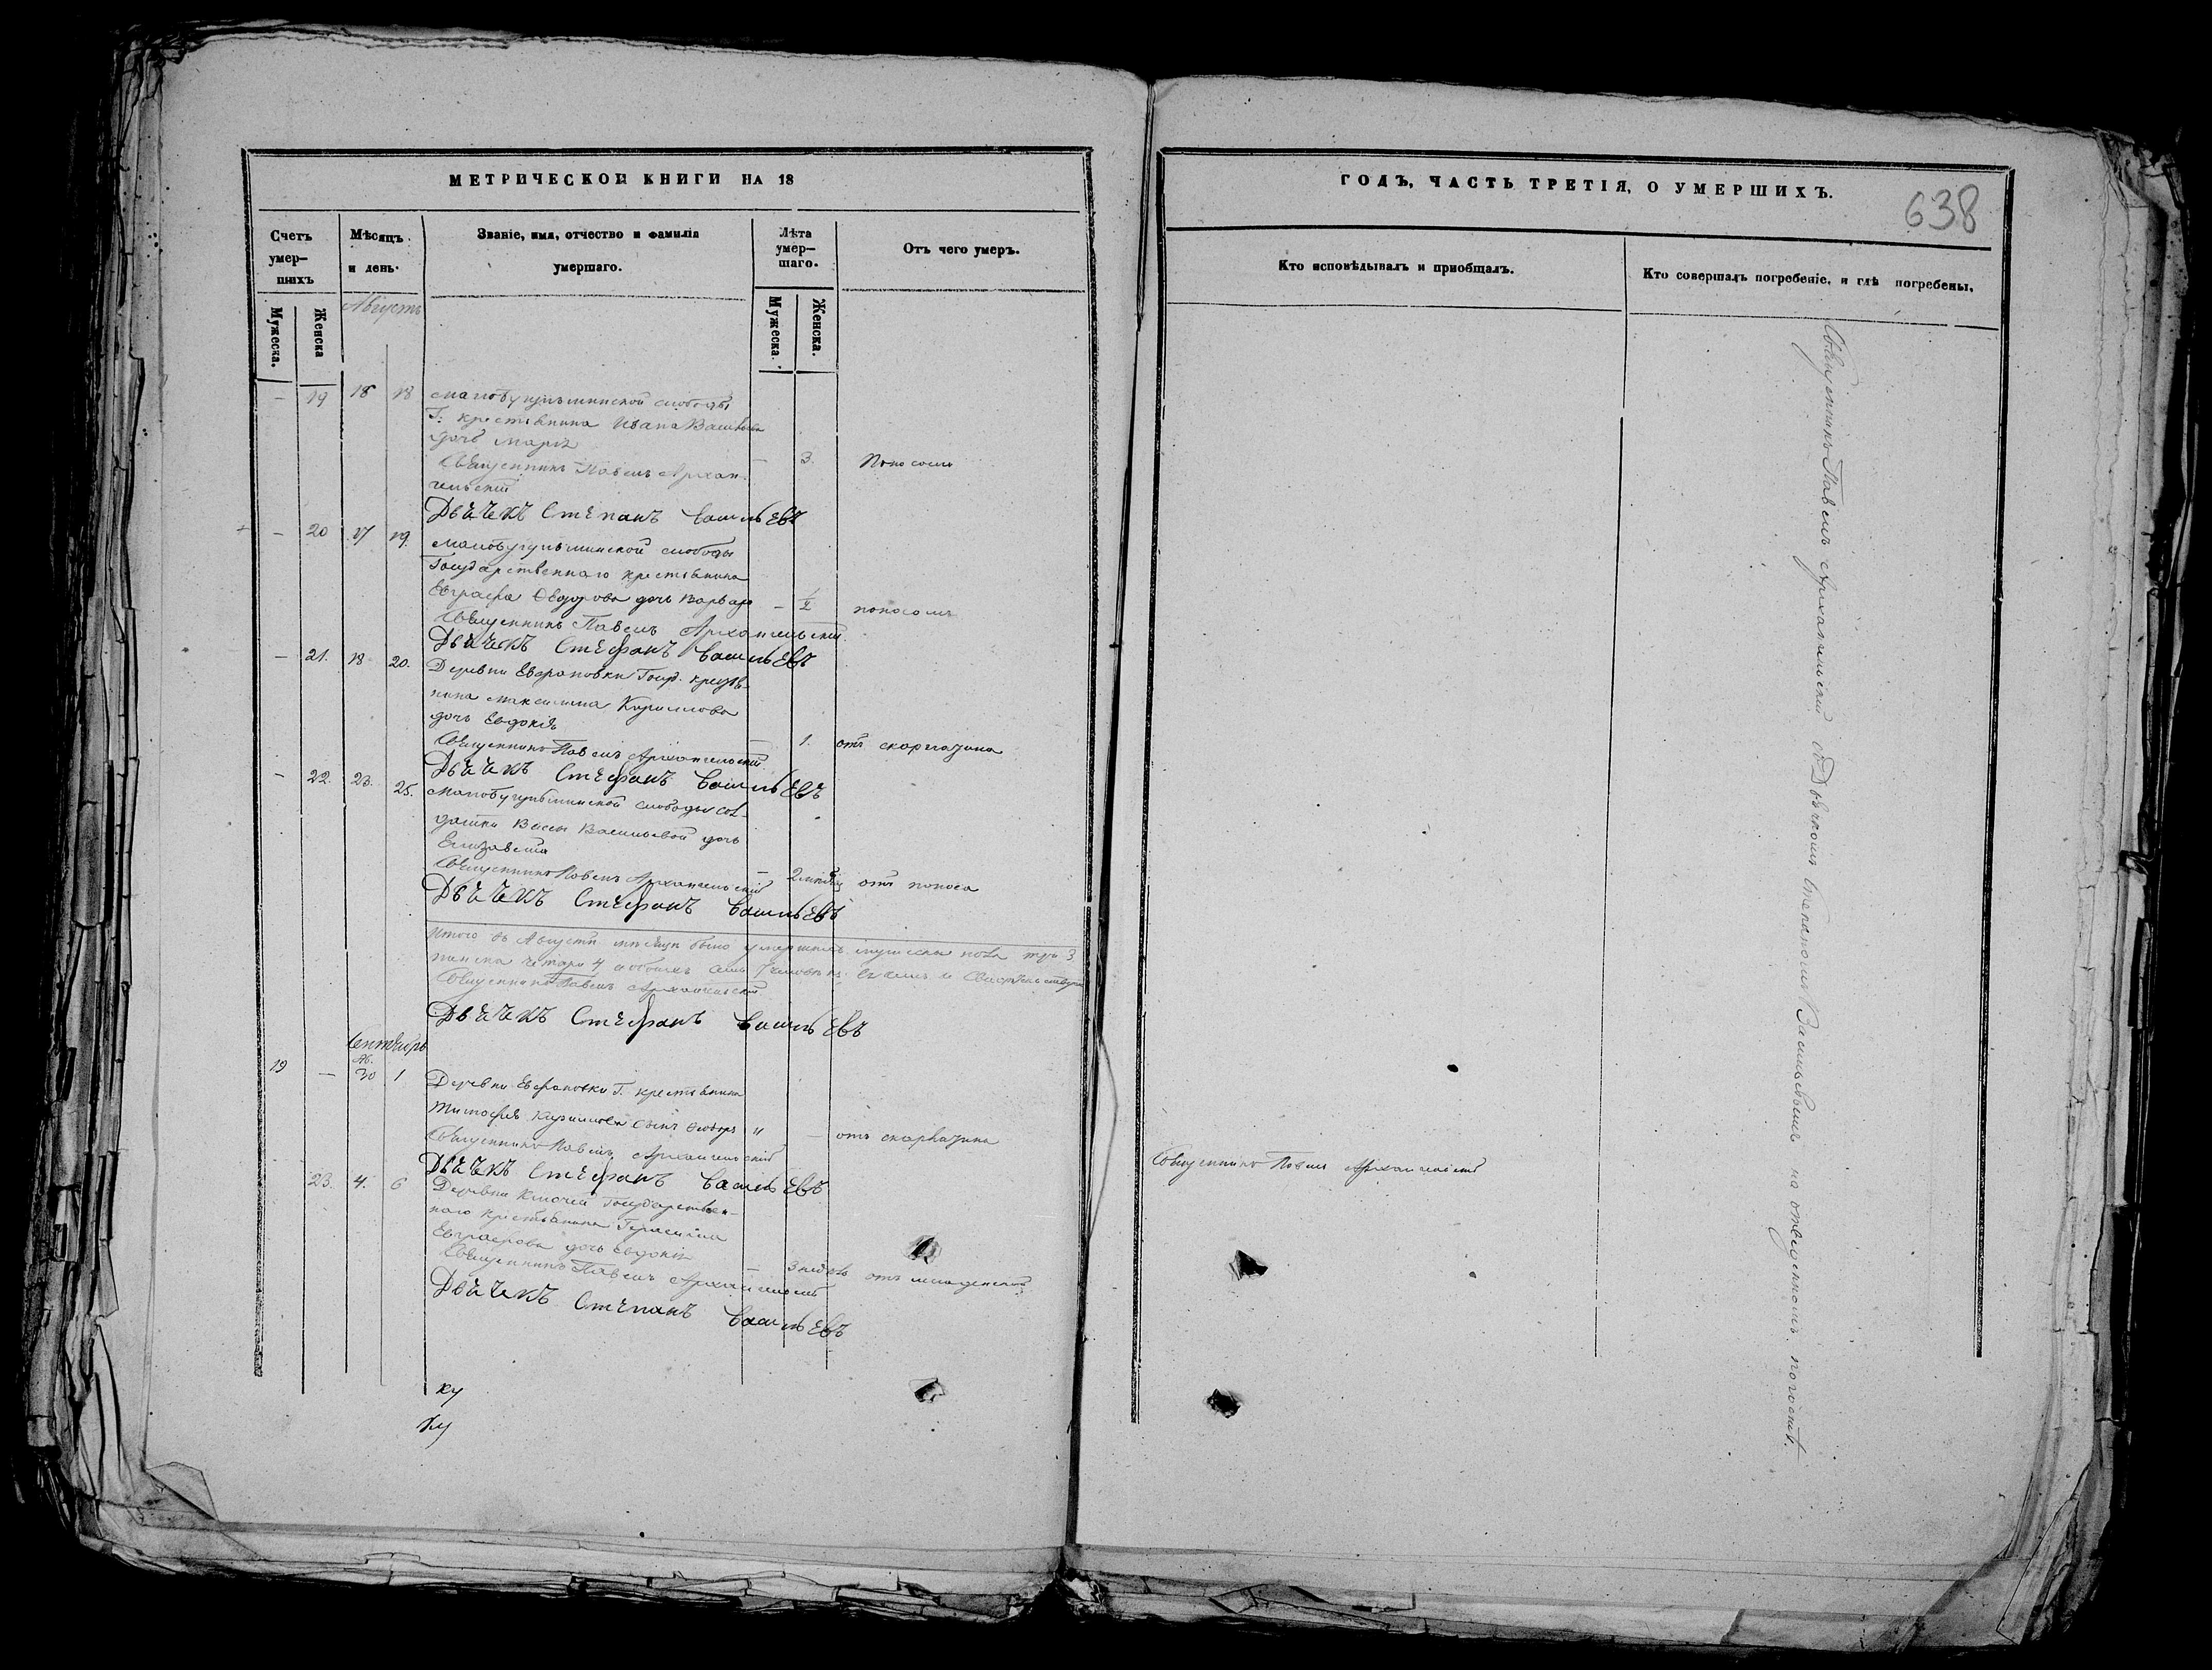 МЕТРИЧЕСКОЙ КНИГИ НА 18
Счетъ умер-шихъ
Мѣсяцъ и день.
Званіе, имя, отчество и фамилія умершаго.
Лѣта умер-шаго.
Отъ чего умеръ.
Мужеска.
Женска
Августъ
Мужеска.
Женска.
– 19 16 18 Малобугульминской слободы
Г. крестьянина Ивана Васильева
дочь Марія – 3. Поносомъ
Священникъ Павелъ Архан-
гельскій
Дьячекъ Степанъ Васильевъ
– 20 17 19. Малобугульминской слободы
Государственнаго крестьянина
Евграфа Ѳедорова дочь Варвара – 1/2 поносомъ
Священникъ Павелъ Архангельскій
Дьячекъ Стефанъ Васильевъ
– 21. 18 20. Деревни Госуд. крестья-
нина Максима Кирилова
дочь Евдокія – 1. отъ
Священникъ Павелъ Архангельскій
Дьячекъ Стефанъ Васильевъ
– 22. 23. 25. Малобугульминской слободы сол-
датки Васильевой дочь
Елизавета – 2 отъ поноса
Священникъ Павелъ Архангельскій
Дьячекъ Стефанъ Васильевъ
Итого въ Августѣ мѣсяцѣ было умершихъ мужеска пола три 3
женска четыре 4 обоихъ семь
Священникъ Павелъ Архангельскій
Дьячекъ Стефанъ Васильевъ
Сентябрь
Ав.
19 – 30 1 Деревни Г. крестьянина
Тимофея Кирилова сынъ Ѳедоръ " – отъ
Священникъ Павелъ Архангельскій
Дьячекъ Стефанъ Васильевъ
23. 4. 6 Деревни Ключей Государствен-
наго крестьянина Герасима
Евграфова дочь Евдокія – 3 недѣль отъ младенской
Священникъ Павелъ Архангельскій
Дьячекъ Степанъ Васильевъ
ку
ку
ГОДЪ, ЧАСТЬ ТРЕТІЯ, О УМЕРШИХЪ.
638
Кто исповѣдывалъ и пріобщалъ.
Кто совершалъ погребеніе, и гдѣ погребены.
Священникъ Павелъ Архангельскій
Священникъ Павелъ Архангельскій съ Дьячкомъ Степаномъ Васильевымъ на отведенномъ погостѣ.